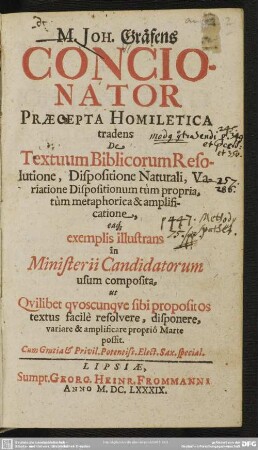 M. JOH. Gräfens
CONCIO-
NATOR
PRÆCEPTA HOMILETICA
tradens
De
Textuum Biblicorum Reso-
lutione, Dispositione Naturali, Va-
riatione Dispositionum tùm propria,
tùm metaphorica & amplifi-
catione,
eaq;
exemplis illustrans
in
Ministerii Candidatorum
usum composita,
ut
Qvilibet qvoscunqve sibi propositos
textus facilè resolvere, disponere,
variare & amplificare propriô Marte
possit.
Cum Gratia & Privil. Potentiss. Elect. Sax. special.
LIPSIÆ,
Sumpt. GEORG. HEINR. FROMMANNI
ANNO M. DC. LXXXIX.
257.
286.
1447.